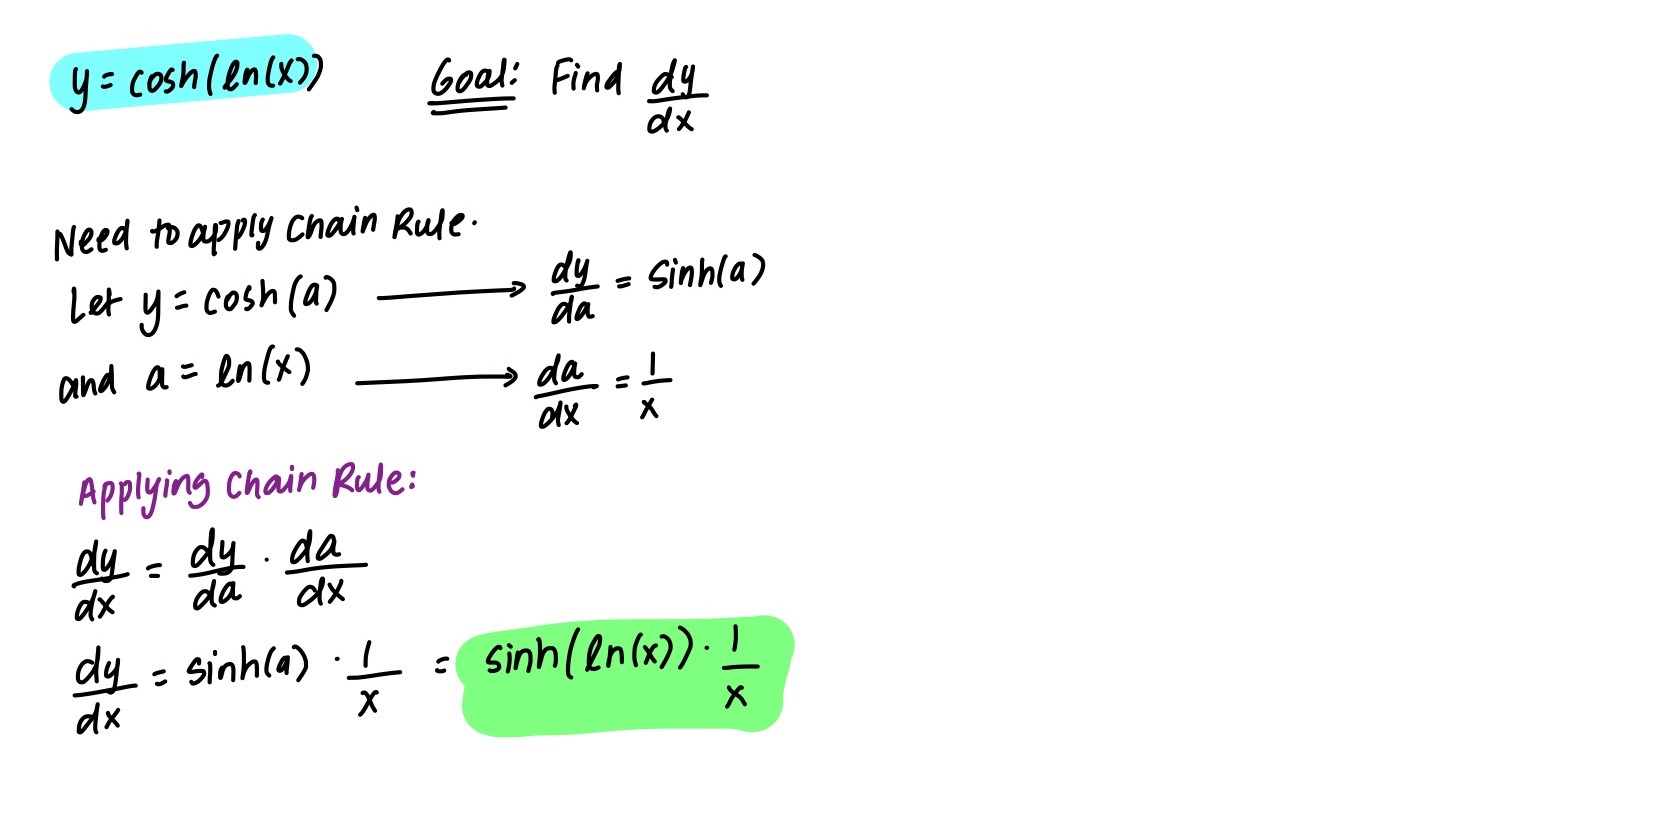 y = cosh(ln(x)) Goal: Find dy/dx
Need to apply Chain Rule.
Let y = cosh(a) ⟶ dy/da = sinh(a)
and a = ln(x) ⟶ da/dx = 1/x
Applying Chain Rule:
dy/dx = dy/da · da/dx
dy/dx = sinh(a) · 1/x = sinh(ln(x)) · 1/x